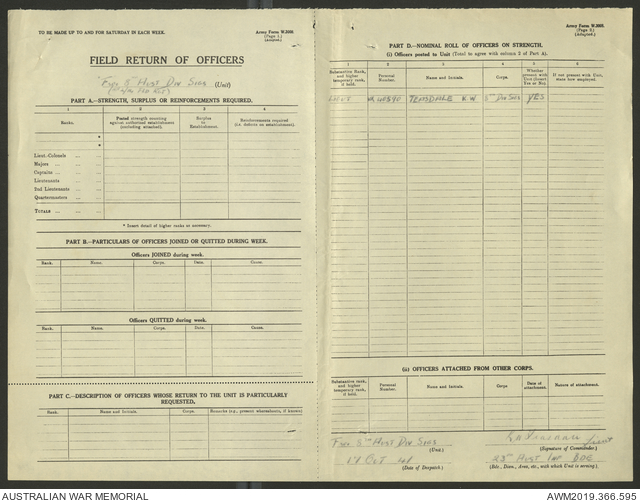 TO BE MADE UP TO AND FOR SATURDAY IN EACH WEEK.
Army Form W.3008.
(Page 1.)
(Adapted.)
FIELD RETURN OF OFFICERS
8th Aust Div Sigs (Unit)
PART A.—STRENGTH, SURPLUS OR REINFORCEMENTS REQUIRED.
1 2 3 4
Ranks.
Posted strength counting against authorized establishment (excluding attached).
Surplus to Establishment.
Reinforcements required (i.e. deficits on establishment).
*
*
Lieut.-Colonels ... ...
Majors ... ...
Captains ... ...
Lieutenants ...
2nd Lieutenants ...
Quartermasters ...
TOTALS ... ...
* Insert detail of higher ranks as necessary.
PART B.—PARTICULARS OF OFFICERS JOINED OR QUITTED DURING WEEK.
Officers JOINED during week.
Rank. Name. Corps. Date. Cause.
Officers QUITTED during week.
Rank. Name. Corps. Date. Cause.
PART C.—DESCRIPTION OF OFFICERS WHOSE RETURN TO THE UNIT IS PARTICULARLY REQUESTED.
Rank. Name and Initials. Corps. Remarks (e.g., present whereabouts, if known)
Army Form W.3008.
(Page 2.)
(Adapted.)
PART D.—NOMINAL ROLL OF OFFICERS ON STRENGTH.
(i) Officers posted to Unit (Total to agree with column 2 of Part A).
1 2 3 4 5 6
Substantive Rank, and higher temporary rank, if held.
Personal Number.
Name and Initials.
Corps.
Whether present with Unit (Insert Yes or No).
If not present with Unit, state how employed.
TEASDALE K W 8th Div Sigs YES
(ii) OFFICERS ATTACHED FROM OTHER CORPS.
Substantive rank, and higher temporary rank, if held.
Personal Number.
Name and Initials.
Corps
Date of attachment.
Nature of attachment.
8th Aust Div Sigs
(Unit.)
Oct 41
(Date of Despatch.)
Lieut
(Signature of Commander.)
23rd Aust Inf BDE
(Bde., Divn., Area, etc., with which Unit is serving.)
AUSTRALIAN WAR MEMORIAL
AWM2019.366.595